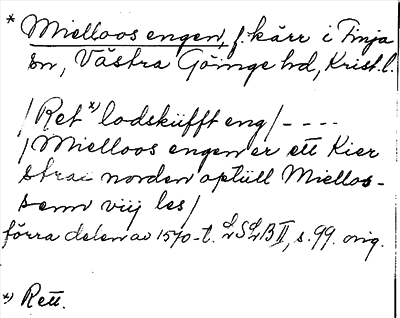 * Mielloos engen, f. kärr i Finja
sn, Västra Göinge hd, Krist. l.
/Ret *) lodskifft eng/ - - - -
/Mielloos engen er ett Kier
strax norden optill Miellos-
senn viij les/
förra delen av 1570-t. LSLB II, s. 99. orig.
*) Rett.